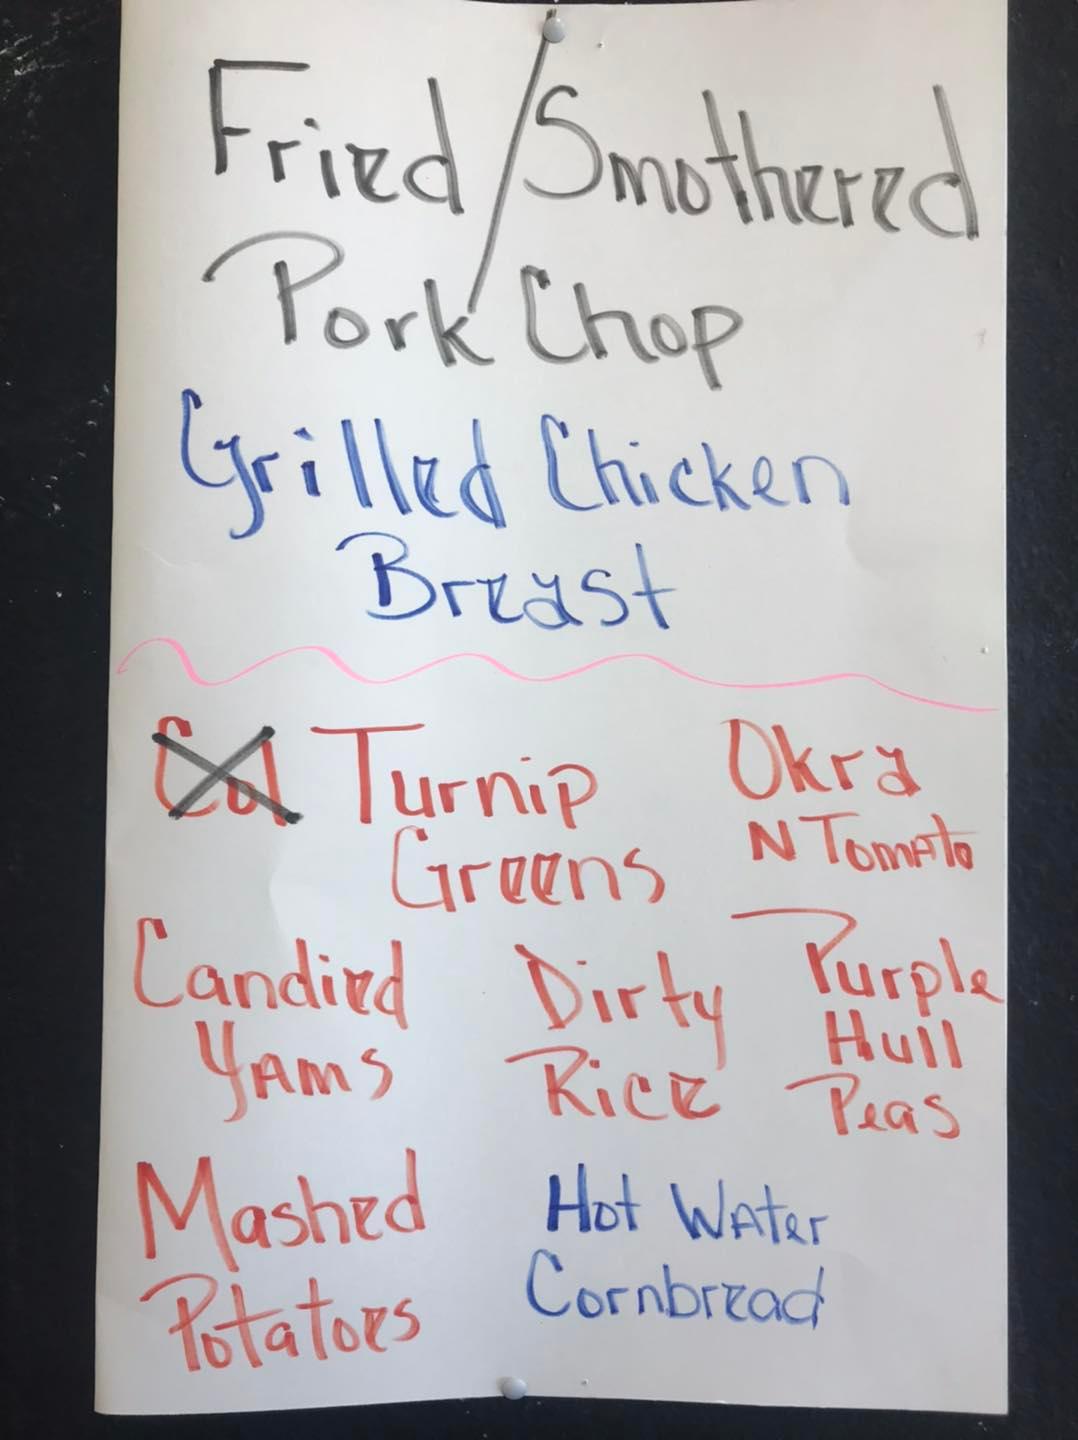 Fried/Smothered
Pork Chop
Grilled Chicken
Breast
Col Turnip
Greens
Okra
N Tomato
Candied
Yams
Dirty
Rice
Purple
Hull
Peas
Mashed
Potatoes
Hot Water
Cornbread